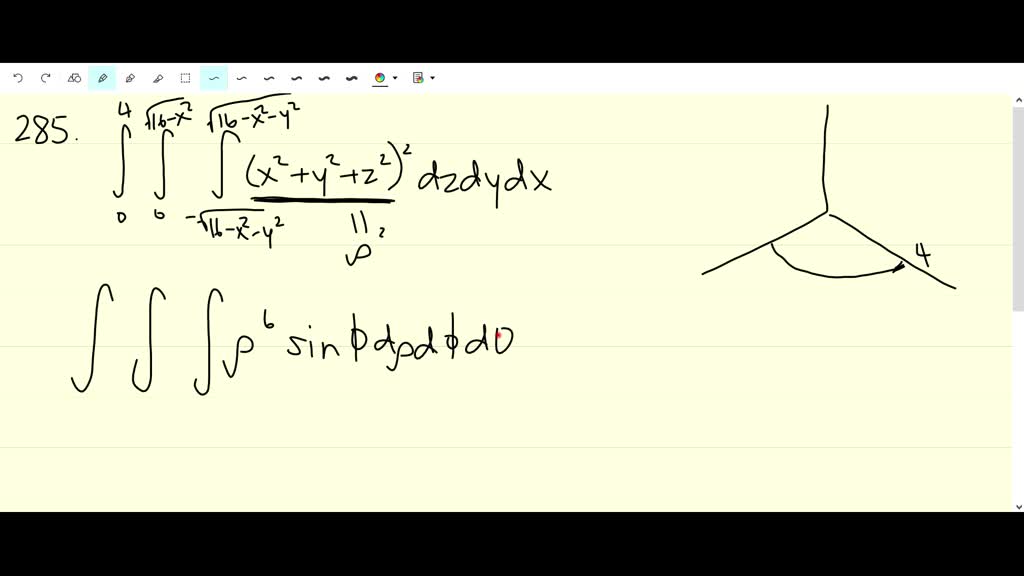 285. ∫₀⁴ ∫₀^√(16-x²) ∫_(-√(16-x²-y²))^√(16-x²-y²) (x²+y²+z²)² dzdydx
||
ρ²
4
∫ ∫ ∫ ρ⁶ sinϕ dρdϕdθ